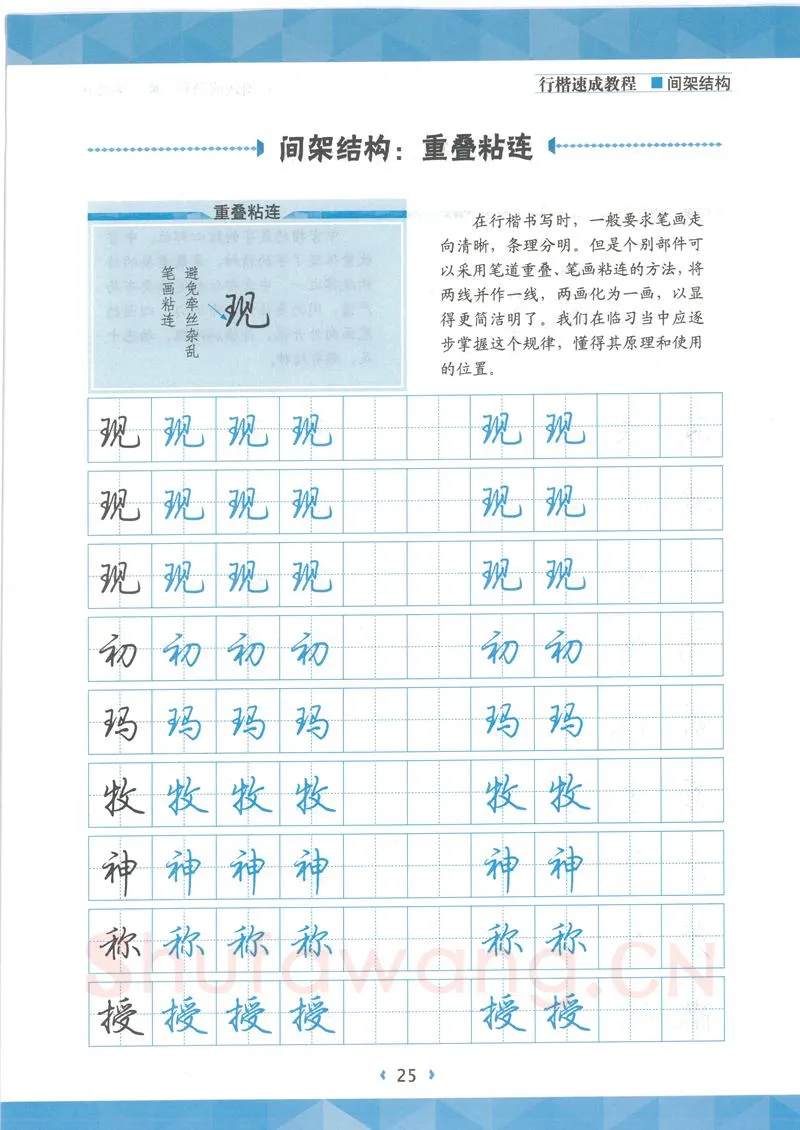 行楷速成教程 ■间架结构
间架结构：重叠粘连
重叠粘连
避免牵丝杂乱
笔画粘连
现
在行楷书写时，一般要求笔画走
向清晰，条理分明。但是个别部件可
以采用笔道重叠、笔画粘连的方法，将
两线并作一线，两画化为一画，以显
得更简洁明了。我们在临习当中应逐
步掌握这个规律，懂得其原理和使用
的位置。
现 现 现 现 现 现
现 现 现 现 现 现
现 现 现 现 现 现
初 初 初 初 初 初
玛 玛 玛 玛 玛 玛
牧 牧 牧 牧 牧 牧
神 神 神 神 神 神
称 称 称 称 称 称
Shufawang.CN
授 授 授 授 授 授
25